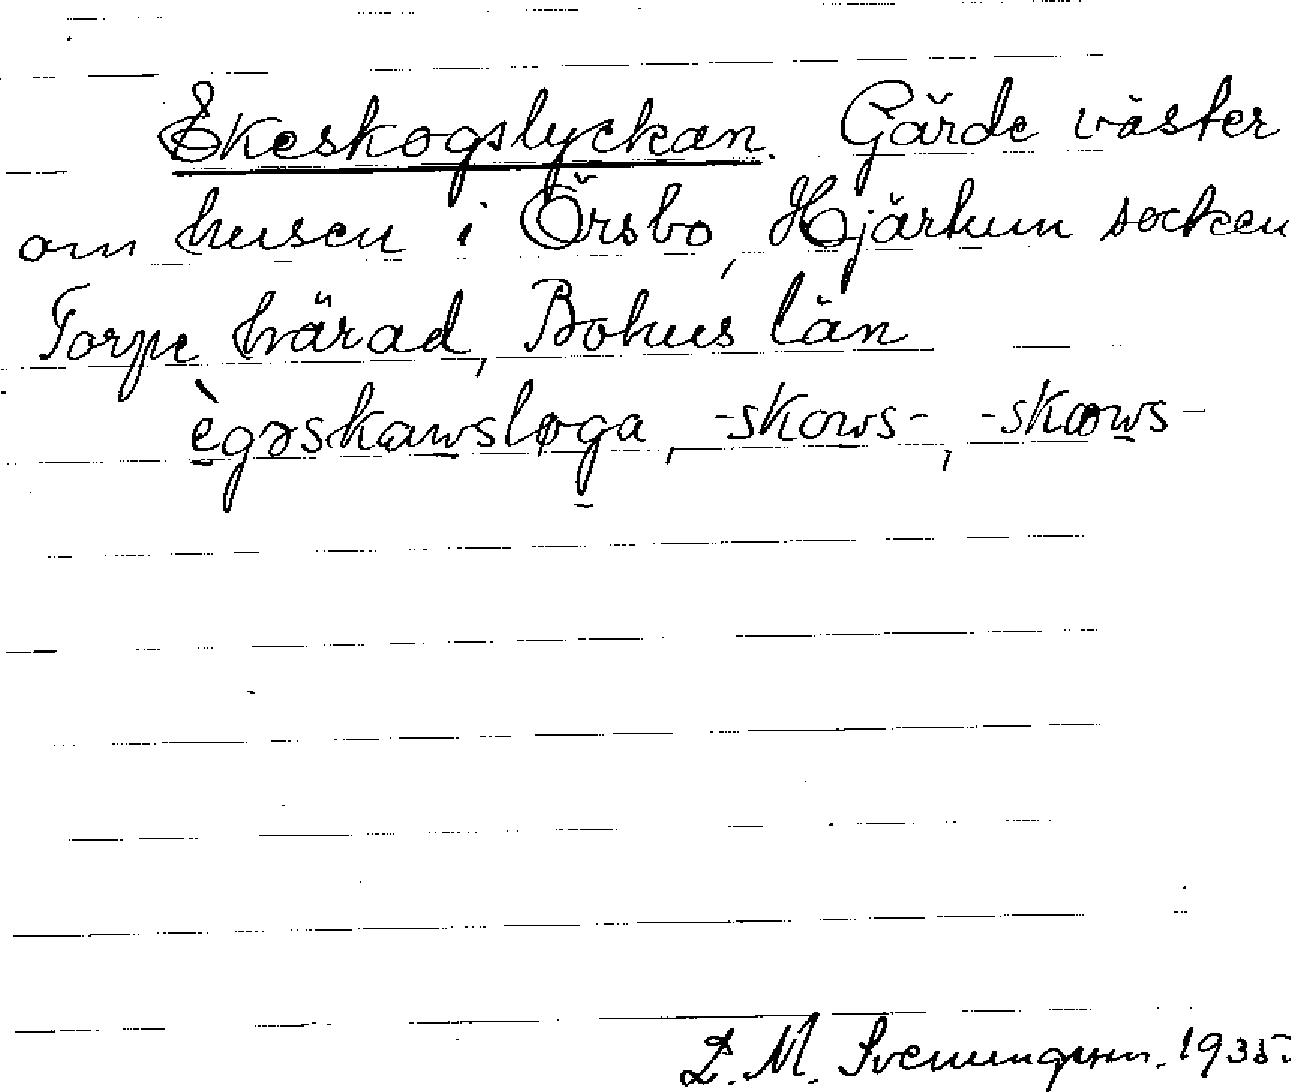 Ekeskogslyckan. Gärde väster
om husen i Örsbo, Hjärtum socken
Torpe härad, Bohus län
ègəskawsløga, -skows-, -skæws-
L. M. Svenungsson. 1935.